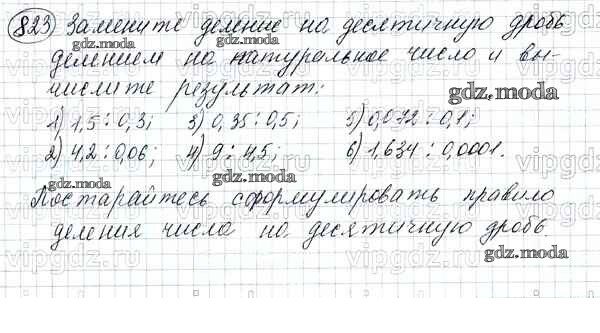 823) Замените деление на десятичную дробь
делением на натуральное число и вы-
числите результат:
1) 1,5 : 0,3; 3) 0,35 : 0,5; 5) 0,072 : 0,1;
2) 4,2 : 0,06; 4) 9 : 4,5; 6) 1,634 : 0,0001.
Постарайтесь сформулировать правило
деления числа на десятичную дробь.
gdz.moda
gdz.moda
gdz.moda
gdz.moda
gdz.moda
gdz.moda
gdz.moda
vipgdz.ru